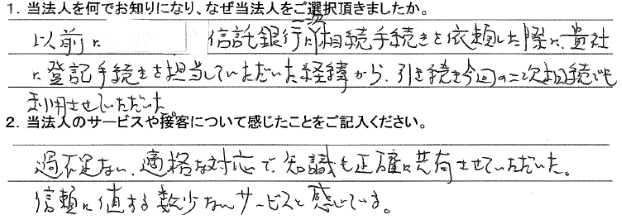 1. 当法人を何でお知りになり、なぜ当法人をご選択頂きましたか。
以前に 信託銀行に一次相続手続きを依頼した際に、貴社
に登記手続きを担当していただいた経緯から、引き続き今回の二次相続でも
利用させていただいた。
2. 当法人のサービスや接客について感じたことをご記入ください。
過不足ない、適格な対応で、知識も正確に共有させていただいた。
信頼に値する数少ないサービスと感じている。